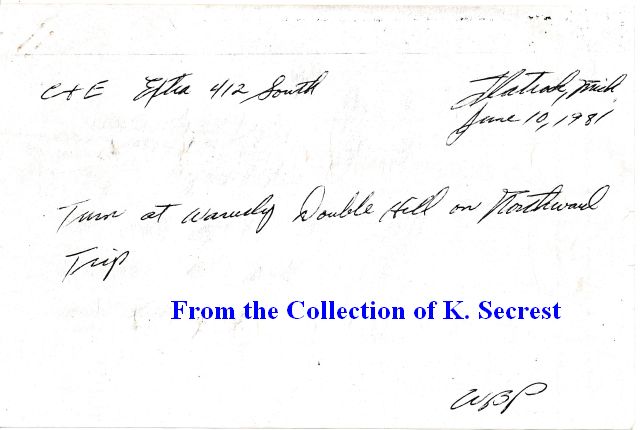 C & E Extra 412 South
Flatrock, Mich
June 10, 1981
Turn at Waverly Double Hill on Northward
Trip
From the Collection of K. Secrest
WBP